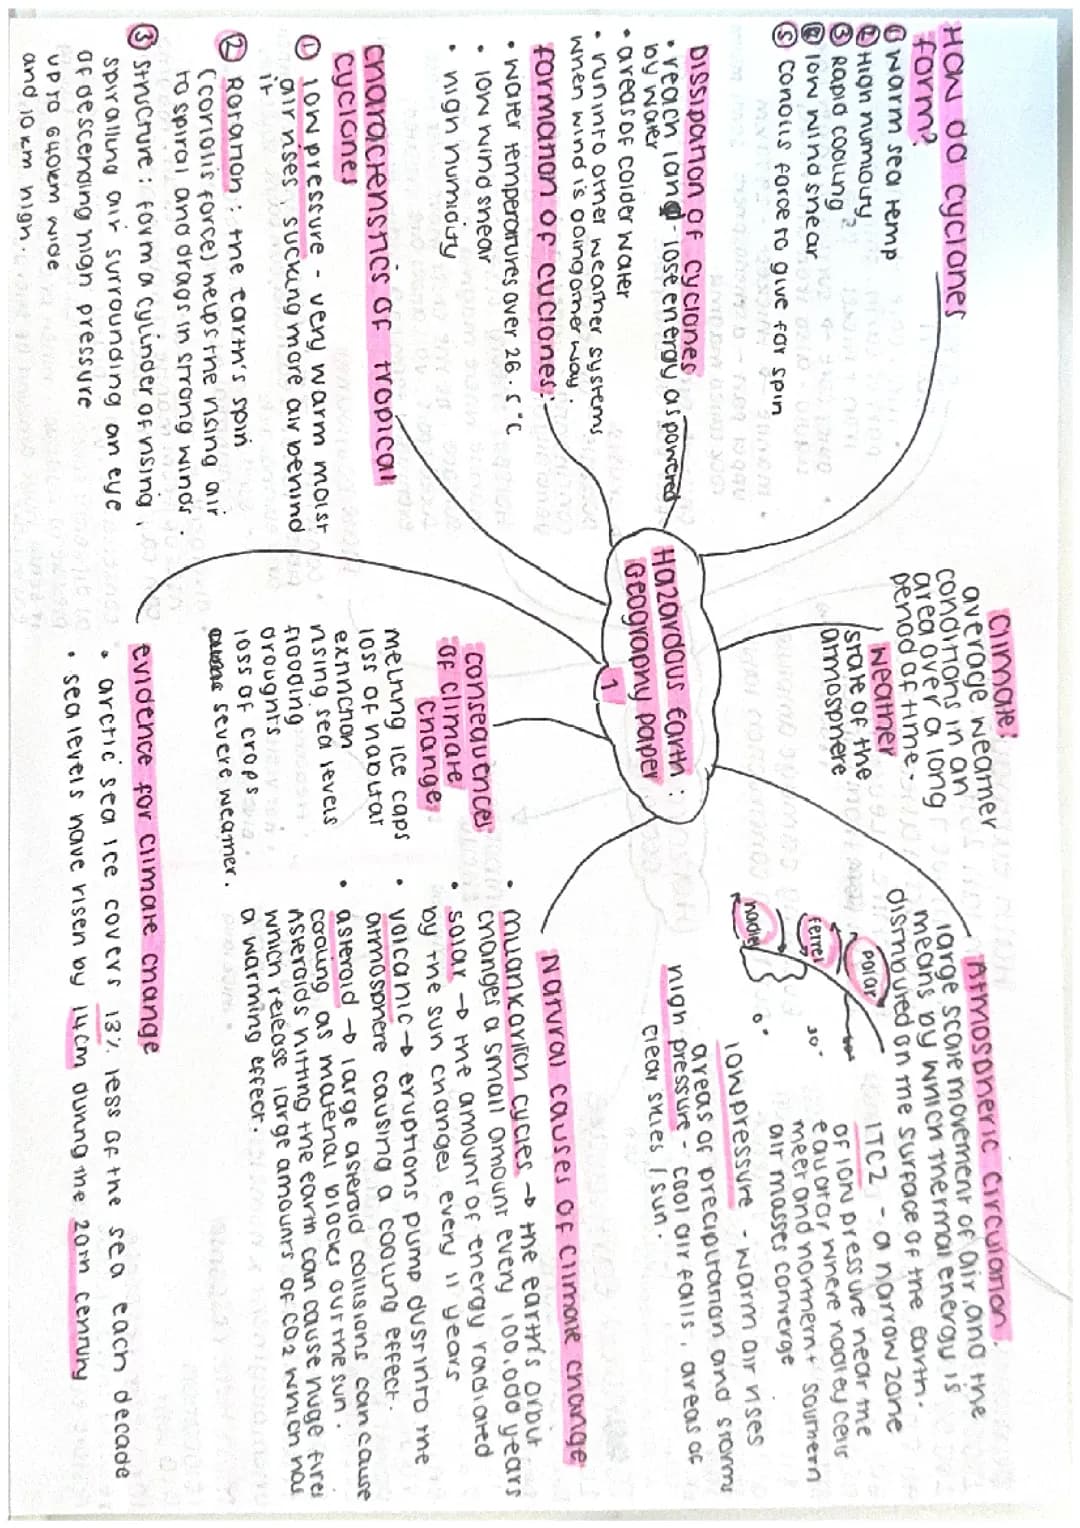 Hazardous Earth:
Geography paper
1
How do cyclones
form?
① warm sea temp
② High humidity
③ Rapid cooling
④ low wind shear
⑤ Coriolis force to give far spin
Dissipation of cyclones
• reach land - lose energy as powered
by water
• areas of colder water
• run into other weather systems
when wind is going other way.
formation of cyclones:
• water temperatures over 26.5°C
• low wind shear
• high humidity
Characteristics of tropical
cyclones
① low pressure - very warm moist
air rises, sucking more air behind
it
② Rotation: the Earth's spin
(coriolis force) helps the rising air
to spiral and drags in strong winds.
③ structure: form a cylinder of rising,
spiralling air surrounding an eye
of descending high pressure
up to 640km wide
and 10km high.
Climate:
average weather
conditions in an
area over a long
period of time.
Weather
state of the
atmosphere
Atmospheric circulation.
large scale movement of air and the
means by which thermal energy is
distributed on the surface of the earth.
polar
ferrel
hadley
60°
30°
0°
ITCZ - a narrow zone
of low pressure near the
equator where hadley cells
meet and northern + southern
air masses converge
low pressure - warm air rises
areas of precipitation and storms
high pressure - cool air falls, areas of
clear skies / sun.
Natural causes of climate change
• milankovitch cycles → the earth's orbit
changes a small amount every 100,000 years
• solar → the amount of energy radiated
by the sun changes every 11 years
• volcanic → eruptions pump dust into the
atmosphere causing a cooling effect.
• asteroid → large asteroid collisions can cause
cooling as material blocks out the sun.
Asteroids hitting the earth can cause huge fires
which release large amounts of CO2 which has
a warming effect.
consequences
of climate
change
melting ice caps
loss of habitat
extinction
rising sea levels
flooding
droughts
loss of crops
severe weather.
evidence for climate change
• arctic sea ice covers 13% less of the sea each decade
• sea levels have risen by 14cm during the 20th century